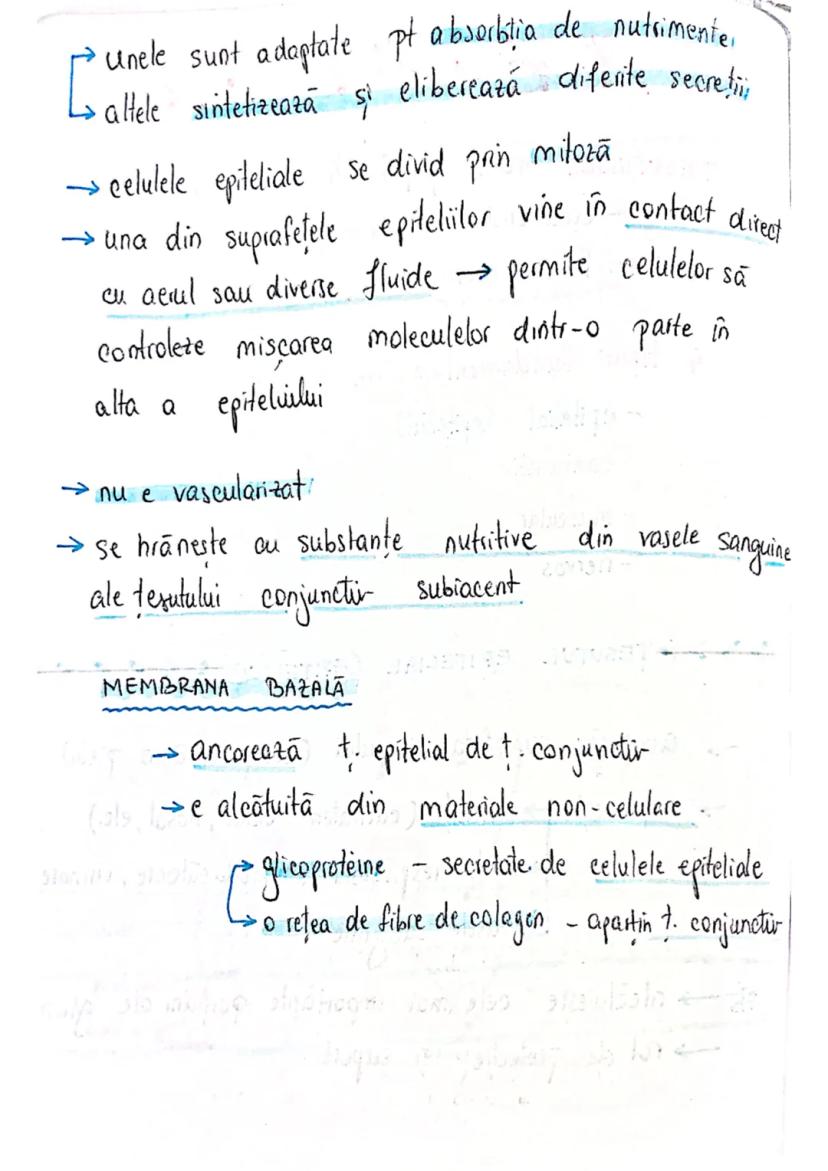 → unele sunt adaptate pt absorbția de nutrimente,
→ altele sintetizează și eliberează diferite secreții,
→ celulele epiteliale se divid prin mitoză
→ una din suprafețele epiteliilor vine în contact direct
cu aerul sau diverse fluide → permite celulelor să
controleze mișcarea moleculelor dintr-o parte în
alta a epiteluilui
→ nu e vascularizat
→ se hrănește cu substanțe nutritive din vasele sanguine
ale țesutului conjunctiv subiacent
MEMBRANA BAZALĂ
→ ancorează ț. epitelial de ț. conjunctiv
→ e alcătuită din materiale non-celulare
→ glicoproteine - secretate de celulele epiteliale
→ o rețea de fibre de colagen - aparțin ț. conjunctiv